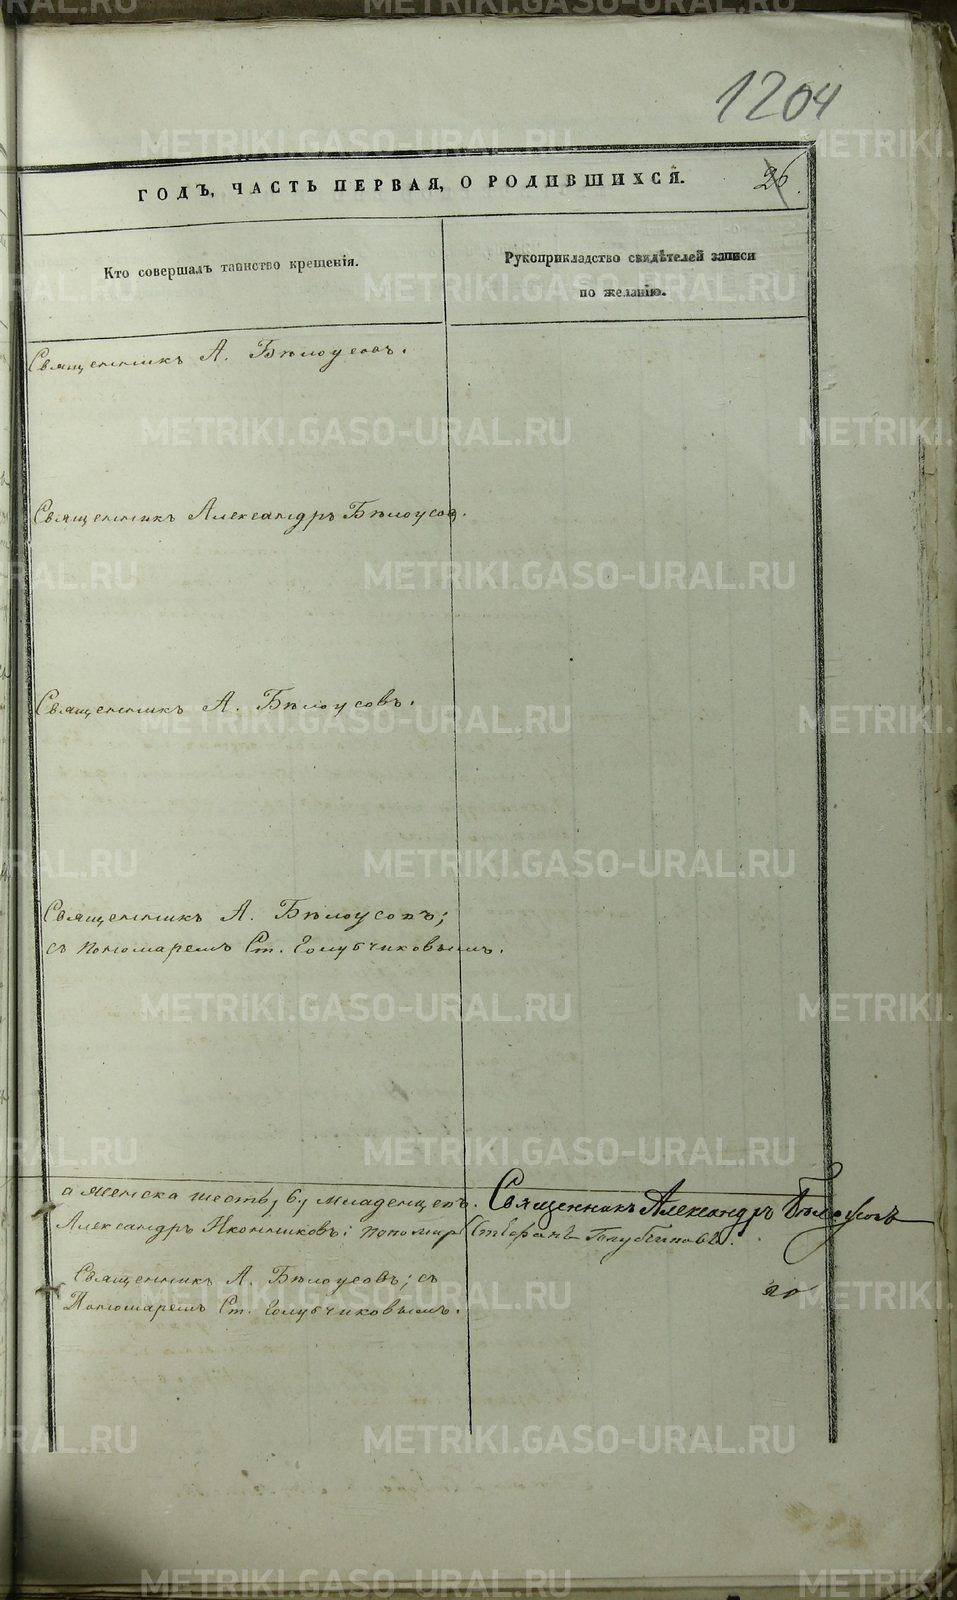 1204
ГОДЪ, ЧАСТЬ ПЕРВАЯ, О РОДИВШИХСЯ.
26.
Кто совершалъ таинство крещенія.
Рукоприкладство свидѣтелей записи
по желанію.
Священникъ А. Бѣлоусовъ.
Священникъ Александръ Бѣлоусов.
Священникъ А. Бѣлоусовъ.
Священникъ А. Бѣлоусовъ;
съ пономаремъ Ст. Голубчиковымъ.
а женска шесть, 6, младенцевъ. Священникъ Александръ Бѣлоусовъ
Александръ Иконниковъ: пономарь Стефанъ Голубчиковъ.
Священникъ А. Бѣлоусовъ; съ
Пономаремъ Ст. Голубчиковымъ.
METRIKI.GASO-URAL.RU